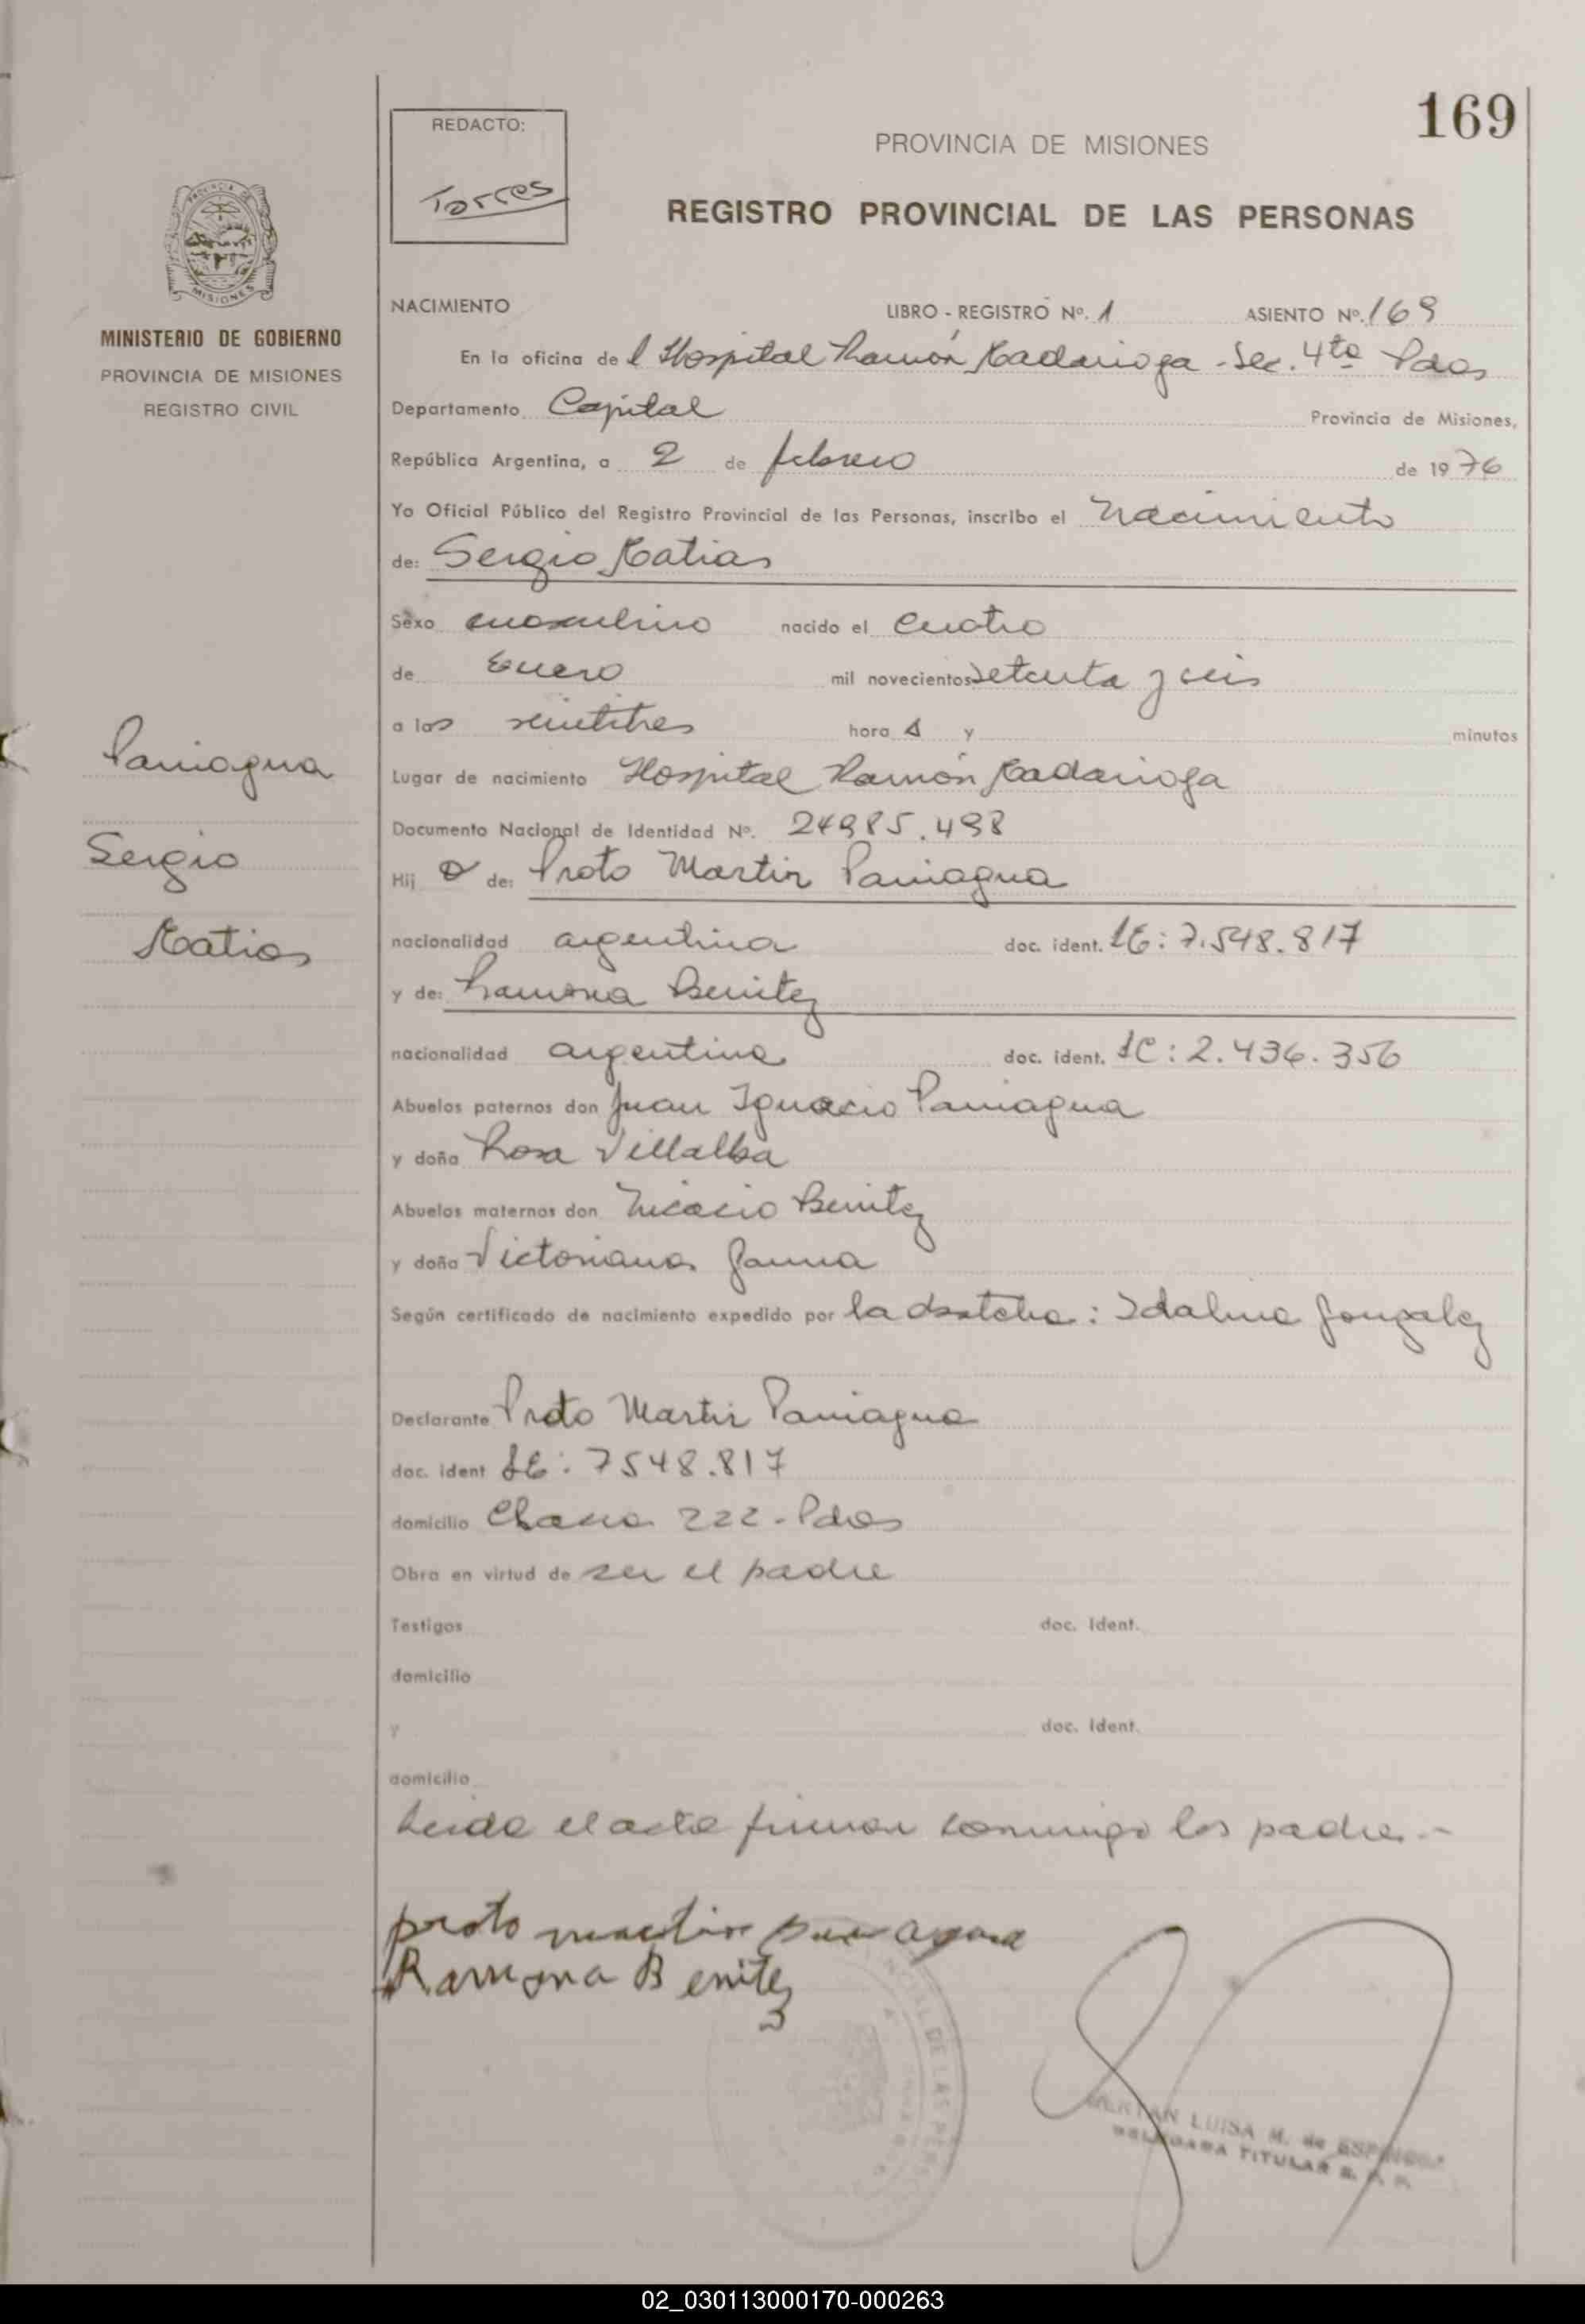 169
REDACTO:
Torres
PROVINCIA DE MISIONES
REGISTRO PROVINCIAL DE LAS PERSONAS
MISIONES
MINISTERIO DE GOBIERNO
PROVINCIA DE MISIONES
REGISTRO CIVIL
NACIMIENTO LIBRO - REGISTRO Nº. 1 ASIENTO Nº. 169
En la oficina de l Hospital Ramón Madariaga - Sec. 4ta Pdas
Departamento Capital Provincia de Misiones,
República Argentina, a 2 de febrero de 1976
Yo Oficial Público del Registro Provincial de las Personas, inscribo el Nacimiento
de: Sergio Matias
Sexo masculino nacido el cuatro
de Enero mil novecientos setenta y seis
a las veintitres hora s y minutos
Lugar de nacimiento Hospital Ramón Madariaga
Documento Nacional de Identidad Nº. 24985.498
Hij o de: Proto Martir Paniagua
nacionalidad argentina doc. ident. LE: 7.548.817
y de: Ramona Benitez
nacionalidad argentina doc. ident. LC: 2.436.356
Abuelos paternos don Juan Ignacio Paniagua
y doña Rosa Villalba
Abuelos maternos don Nicacio Benitez
y doña Victoriana
Según certificado de nacimiento expedido por la : Idalina Gonzalez
Declarante Proto Martir Paniagua
doc. ident LE: 7548.817
domicilio Chacra 222 - Pdas
Obra en virtud de ser el padre
Testigos doc. Ident.
domicilio
y doc. Ident.
domicilio
Leida el acta firman conmigo los padres.-
proto martir paniagua
Ramona Benitez
LUISA M. de
DELEGADA TITULAR
Paniagua
Sergio
Matias
02_030113000170-000263